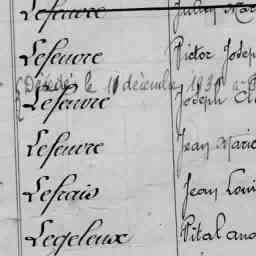 Lefeuvre Julien Mar
Lefeuvre Victor Josep
(Décédé le 11 décembre 193
Lefeuvre Joseph
Lefeuvre Jean Marie
Lefrais Jean Loui
Legeleux Vital